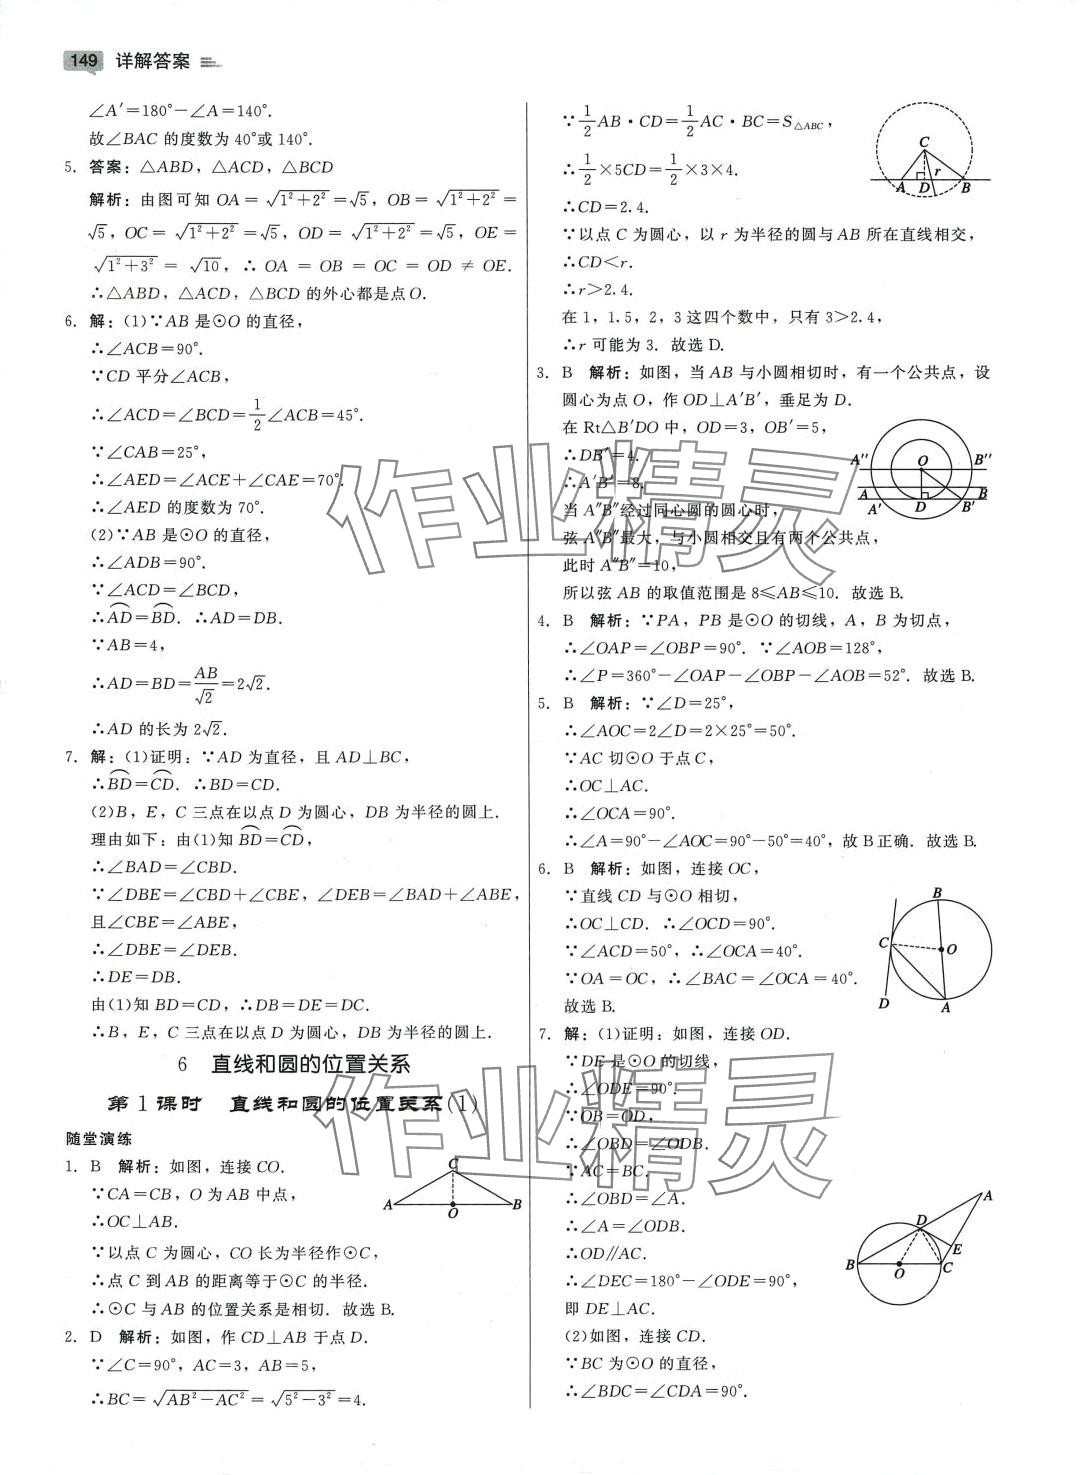 149 详解答案
∠A′=180°-∠A=140°.
故∠BAC 的度数为 40°或 140°.
5. 答案:△ABD,△ACD,△BCD
解析:由图可知 OA=√(1²+2²)=√5,OB=√(1²+2²)=
√5,OC=√(1²+2²)=√5,OD=√(1²+2²)=√5,OE=
√(1²+3²)=√10,∴OA=OB=OC=OD≠OE.
∴△ABD,△ACD,△BCD 的外心都是点O.
6. 解:(1)∵AB 是⊙O 的直径,
∴∠ACB=90°.
∵CD 平分∠ACB,
∴∠ACD=∠BCD=1/2∠ACB=45°.
∵∠CAB=25°,
∴∠AED=∠ACE+∠CAE=70°.
∴∠AED 的度数为 70°.
(2)∵AB 是⊙O 的直径,
∴∠ADB=90°.
∵∠ACD=∠BCD,
∴A͡D=B͡D. ∴AD=DB.
∵AB=4,
∴AD=BD=AB/√2=2√2.
∴AD 的长为 2√2.
7. 解:(1)证明:∵AD 为直径,且 AD⊥BC,
∴B͡D=C͡D. ∴BD=CD.
(2)B,E,C 三点在以点 D 为圆心,DB 为半径的圆上.
理由如下:由(1)知 B͡D=C͡D,
∴∠BAD=∠CBD.
∵∠DBE=∠CBD+∠CBE,∠DEB=∠BAD+∠ABE,
且∠CBE=∠ABE,
∴∠DBE=∠DEB.
∴DE=DB.
由(1)知 BD=CD,∴DB=DE=DC.
∴B,E,C 三点在以点 D 为圆心,DB 为半径的圆上.
6 直线和圆的位置关系
第 1 课时 直线和圆的位置关系(1)
随堂演练
1. B 解析:如图,连接 CO.
∵CA=CB,O 为 AB 中点,
∴OC⊥AB.
∵以点 C 为圆心,CO 长为半径作⊙C,
∴点 C 到 AB 的距离等于⊙C 的半径.
∴⊙C 与 AB 的位置关系是相切. 故选 B.
C
A O B
2. D 解析:如图,作 CD⊥AB 于点 D.
∵∠C=90°,AC=3,AB=5,
∴BC=√(AB²-AC²)=√(5²-3²)=4.
∵1/2AB·CD=1/2AC·BC=S△ABC,
∴1/2×5CD=1/2×3×4.
∴CD=2.4.
∵以点 C 为圆心,以 r 为半径的圆与 AB 所在直线相交,
∴CD<r.
∴r>2.4.
在 1,1.5,2,3 这四个数中,只有 3>2.4,
∴r 可能为 3. 故选 D.
C
r
A D B
3. B 解析:如图,当 AB 与小圆相切时,有一个公共点,设
圆心为点 O,作 OD⊥A′B′,垂足为 D.
在 Rt△B′DO 中,OD=3,OB′=5,
∴DB′=4.
∴A′B′=8.
当 A″B″经过同心圆的圆心时,
弦 A″B″最大,与小圆相交且有两个公共点,
此时 A″B″=10,
所以弦 AB 的取值范围是 8≤AB≤10. 故选 B.
A″ O B″
A B
A′ D B′
4. B 解析:∵PA,PB 是⊙O 的切线,A,B 为切点,
∴∠OAP=∠OBP=90°. ∵∠AOB=128°,
∴∠P=360°-∠OAP-∠OBP-∠AOB=52°. 故选 B.
5. B 解析:∵∠D=25°,
∴∠AOC=2∠D=2×25°=50°.
∵AC 切⊙O 于点 C,
∴OC⊥AC.
∴∠OCA=90°.
∴∠A=90°-∠AOC=90°-50°=40°,故 B 正确. 故选 B.
6. B 解析:如图,连接 OC,
∵直线 CD 与⊙O 相切,
∴OC⊥CD. ∴∠OCD=90°.
∵∠ACD=50°,∴∠OCA=40°.
∵OA=OC,∴∠BAC=∠OCA=40°.
故选 B.
B
C O
D A
7. 解:(1)证明:如图,连接 OD.
∵DE 是⊙O 的切线,
∴∠ODE=90°.
∵OB=OD,
∴∠OBD=∠ODB.
∵AC=BC,
∴∠OBD=∠A.
∴∠A=∠ODB.
∴OD∥AC.
∴∠DEC=180°-∠ODE=90°,
即 DE⊥AC.
A
D
E
B O C
(2)如图,连接 CD.
∵BC 为⊙O 的直径,
∴∠BDC=∠CDA=90°.
作业精灵
作业精灵